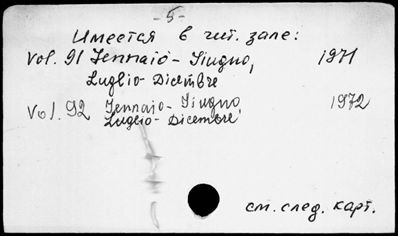 -5-
Имеется в чит. зале:
Vol. 91 Jennaio - Giugno, 1971
Luglio - Dicembre
Vol. 92 Jennaio - Giugno, 1972
Luglio - Dicembre
см. след. карт.